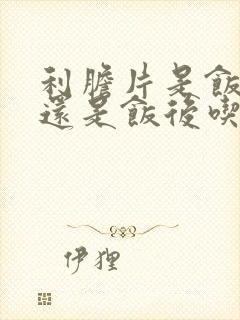 利膽片是飯
還是飯後喫
伊狸